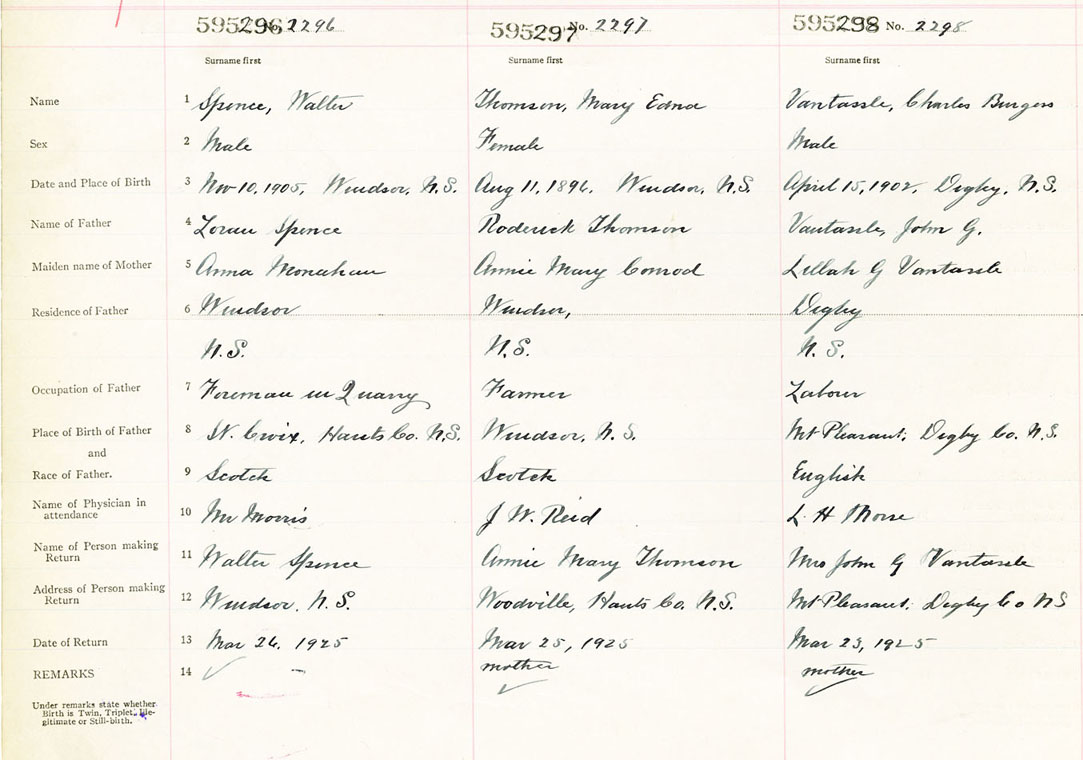 595296 No. 2296 595297 No. 2297 595298 No. 2298
Surname first Surname first Surname first
Name 1 Spence, Walter Thomson, Mary Edna Vantassle, Charles Burgess
Sex 2 Male Female Male
Date and Place of Birth 3 Nov 10, 1905, Windsor, N.S. Aug 11, 1896, Windsor, N.S. April 15, 1902, Digby, N.S.
Name of Father 4 Loran Spence Roderick Thomson Vantassle, John G.
Maiden name of Mother 5 Anna Monahan Annie Mary Conrod Lillah G Vantassle
Residence of Father 6 Windsor Windsor, Digby
N.S. N.S. N.S.
Occupation of Father 7 Foreman in Quarry Farmer Labour
Place of Birth of Father 8 St. Croix, Hants Co. N.S. Windsor, N.S. Mt Pleasant, Digby Co. N.S.
and
Race of Father. 9 Scotch Scotch English
Name of Physician in
attendance 10 Mr Morris J W. Reid L. H Morse
Name of Person making
Return 11 Walter Spence Annie Mary Thomson Mrs John G Vantassle
Address of Person making
Return 12 Windsor, N.S. Woodville, Hants Co. N.S. Mt Pleasant, Digby Co NS
Date of Return 13 Mar 26, 1925 Mar 25, 1925 Mar 23, 1925
REMARKS 14 mother mother
Under remarks state whether
Birth is Twin, Triplet, Ille-
gitimate or Still-birth.